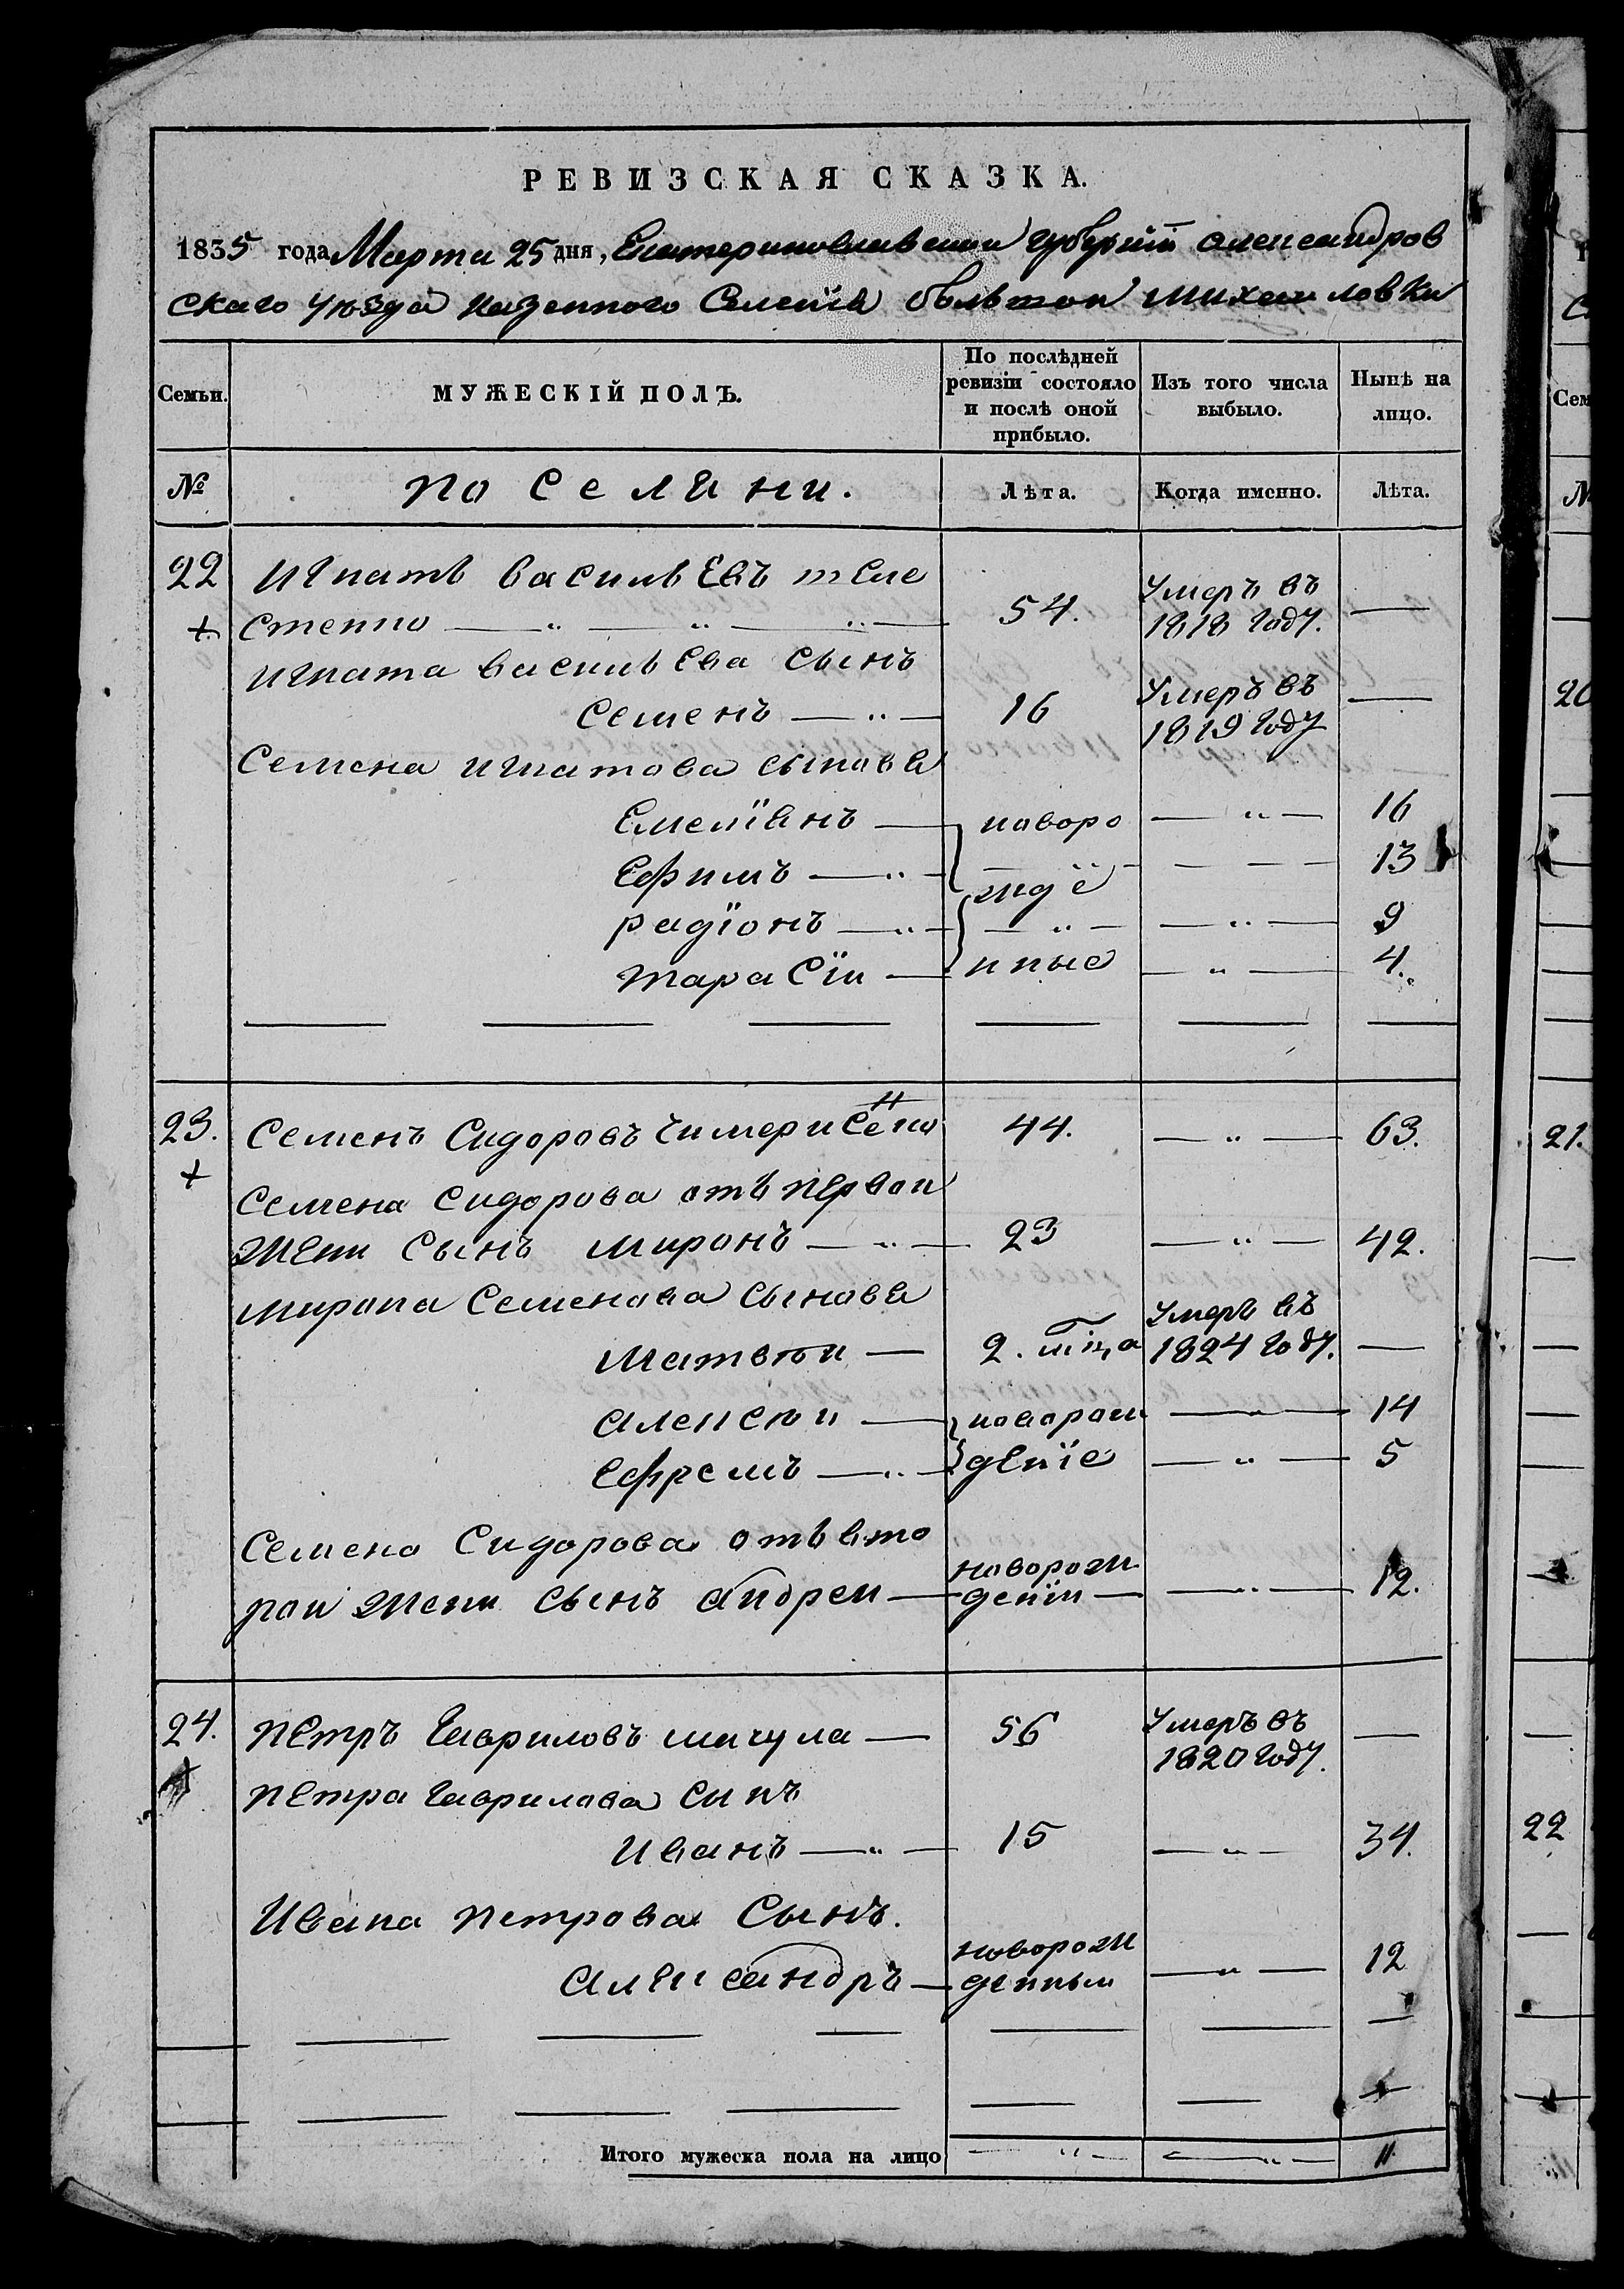 РЕВИЗСКАЯ СКАЗКА.
1835 года Марта 25 дня, Екатеринославской губерній александров
скаго уѣзда казенного Селенія большой михайловки
Семьи. МУЖЕСКІЙ ПОЛЪ. По послѣдней ревизіи состояло и послѣ оной прибыло. Изъ того числа выбыло. Нынѣ на лицо.
№ поселяни. Лѣта. Когда именно. Лѣта.
22 Игнатъ васильевъ
Степно 54. Умеръ въ 1818 году. —
Игната васильева сынъ
Семенъ 16 Умеръ въ 1819 году —
Семена игнатова сыновя
Емеліянъ новоро 16
Ефимъ жде 13
радіонъ 9
тарасіи нные 4.
23. Семенъ Сидоровъ 44. 63.
Семена сидорова отъ первои
жени Сынъ миронъ 23 42.
мирона Семенова сыновя
матвѣи 2. мца Умеръ въ 1824 году. —
алексѣи новорож 14
Ефремъ деніе 5
Семена Сидорова отъ вто
рои жени сынъ андреи новорож деніи 12.
24. петръ гавриловъ шигула 56 Умеръ въ 1820 году. —
петра гаврилова синъ
иванъ 15 34.
Ивана петрова Сынъ.
александръ новорож денныи 12
Итого мужеска пола на лицо 11.
Сем
№
20
21.
22